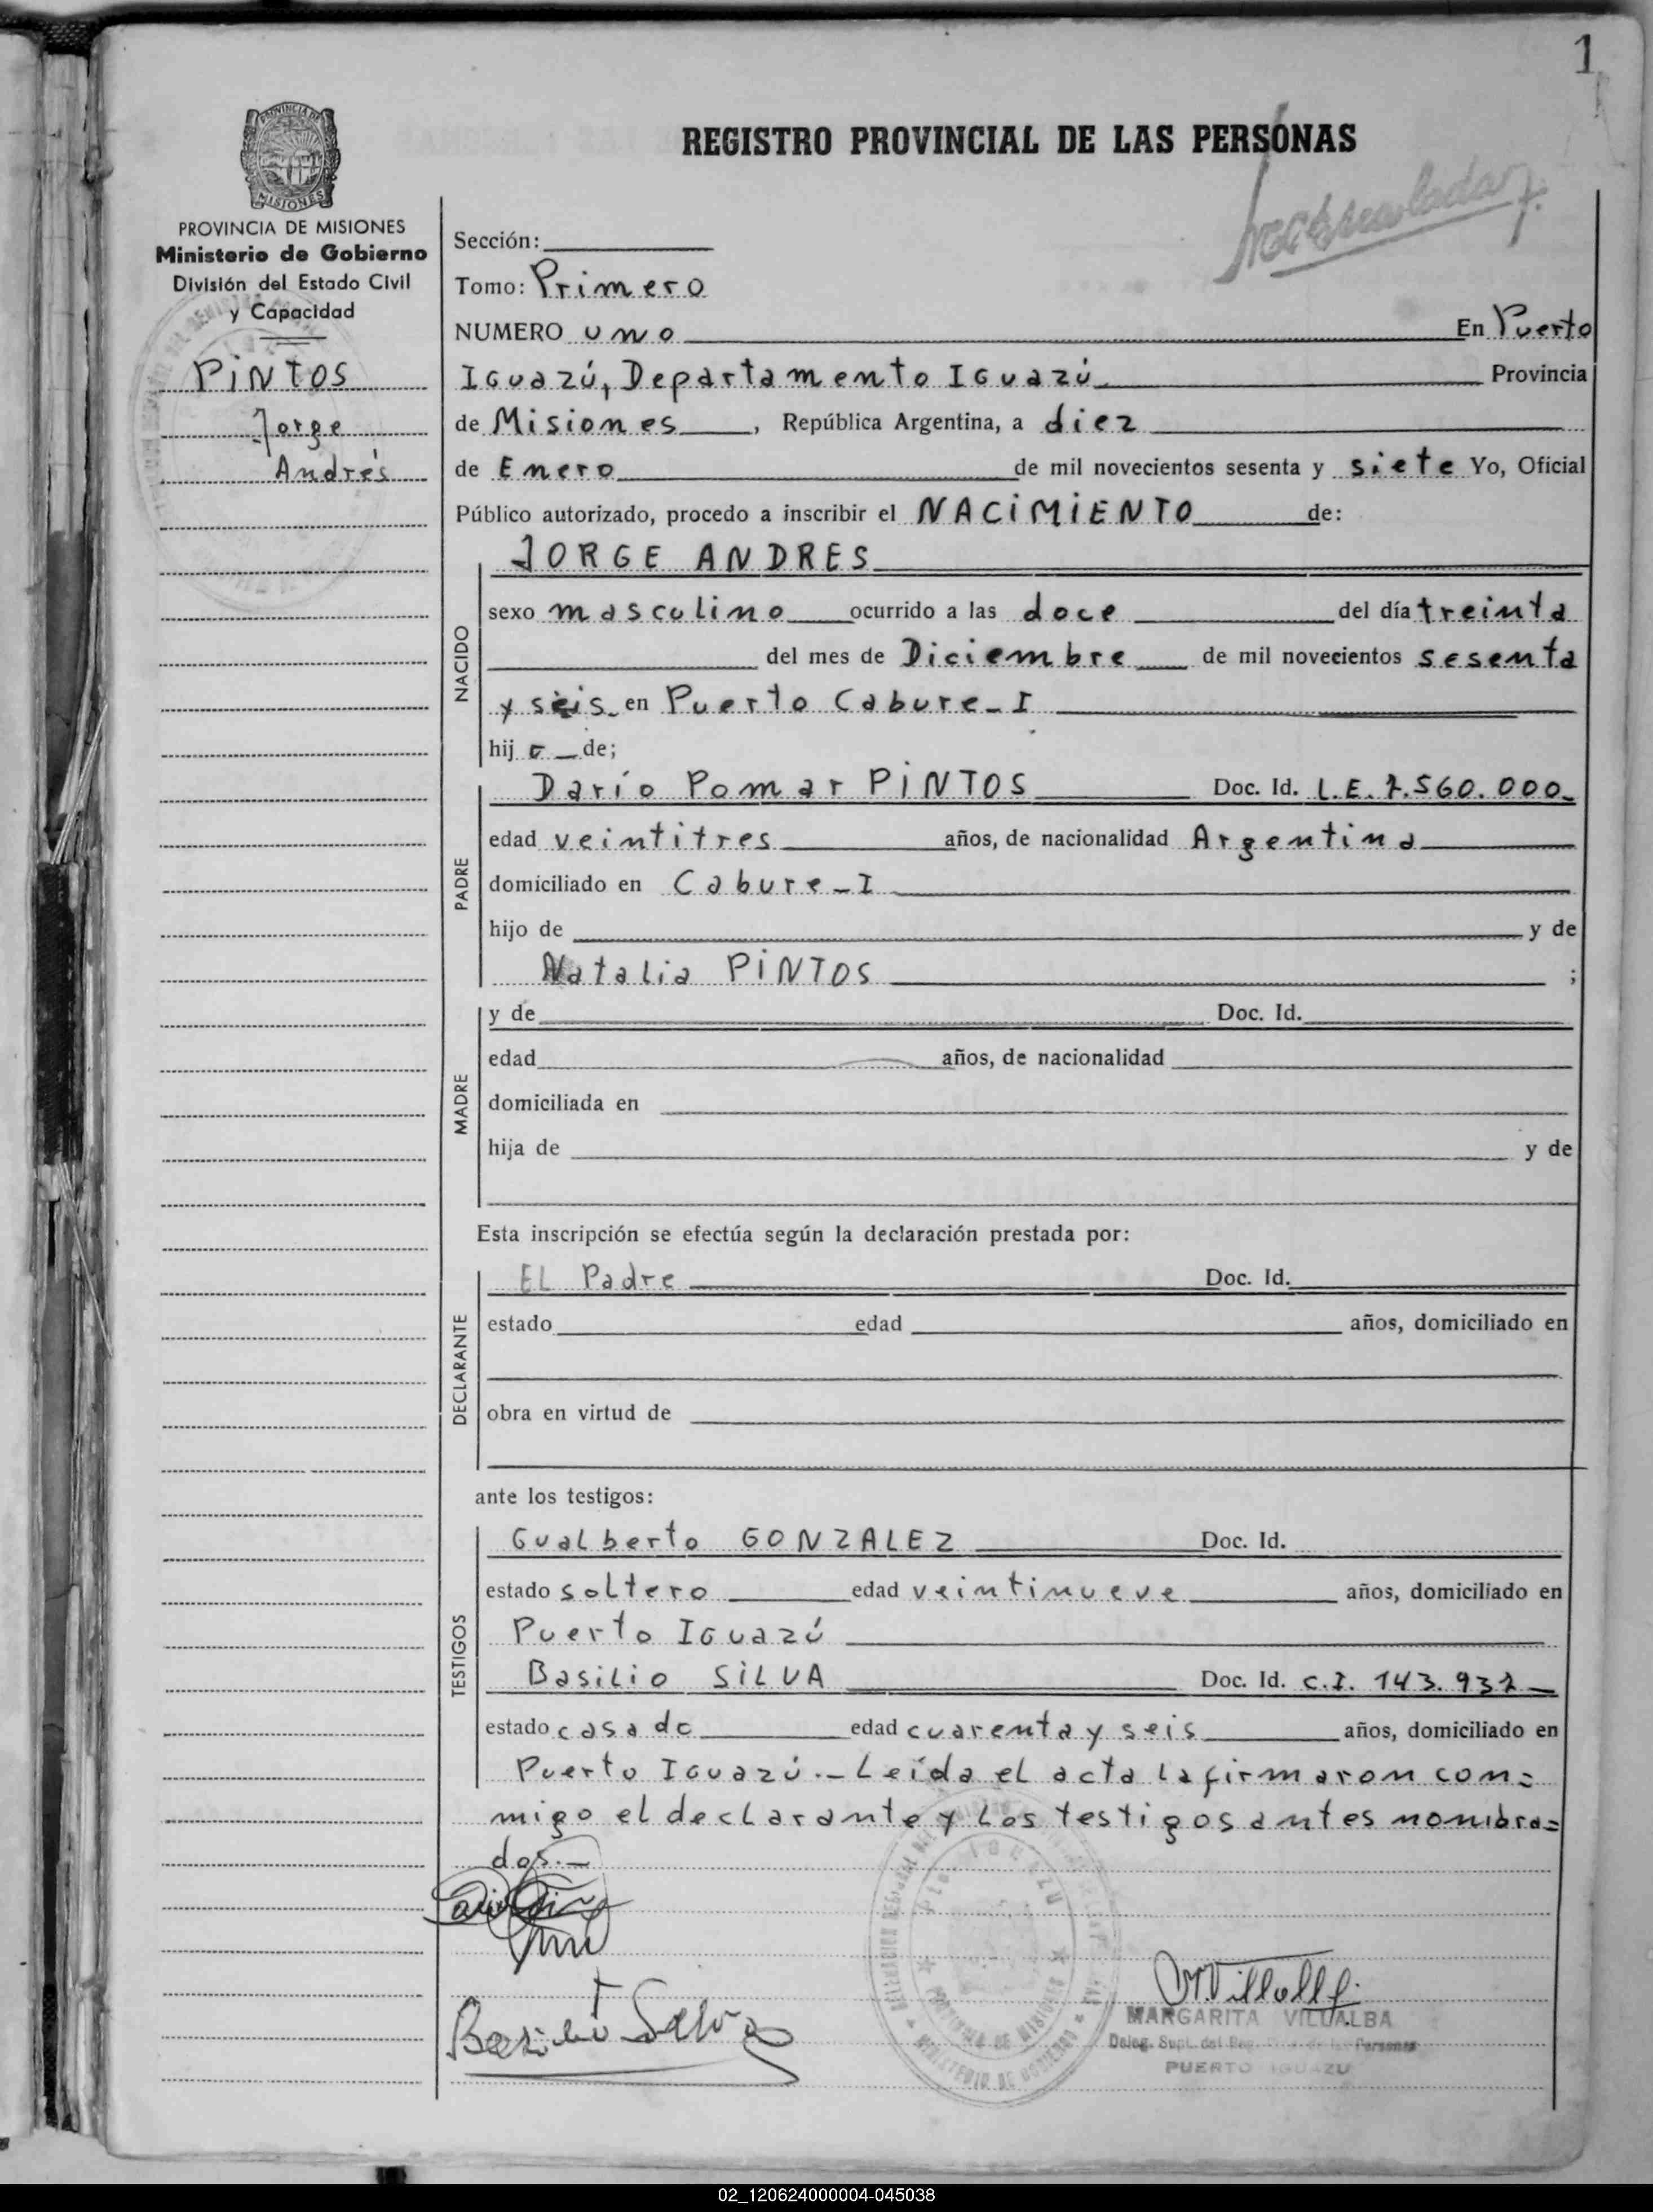 1
REGISTRO PROVINCIAL DE LAS PERSONAS
PROVINCIA DE MISIONES
Ministerio de Gobierno
División del Estado Civil
y Capacidad
PINTOS
Jorge
Andrés
Sección:
Tomo: Primero
NUMERO uno En Puerto
Iguazú, Departamento Iguazú Provincia
de Misiones, República Argentina, a diez
de Enero de mil novecientos sesenta y siete Yo, Oficial
Público autorizado, procedo a inscribir el NACIMIENTO de:
JORGE ANDRES
NACIDO
sexo masculino ocurrido a las doce del día treinta
del mes de Diciembre de mil novecientos sesenta
y seis en Puerto Cabure-I
hijo de;
PADRE
Darío Pomar PINTOS Doc. Id. L.E. 7.560.000
edad veintitres años, de nacionalidad Argentina
domiciliado en Cabure-I
hijo de y de
Natalia PINTOS ;
MADRE
y de Doc. Id.
edad años, de nacionalidad
domiciliada en
hija de y de
Esta inscripción se efectúa según la declaración prestada por:
DECLARANTE
EL Padre Doc. Id.
estado edad años, domiciliado en
obra en virtud de
ante los testigos:
TESTIGOS
Gualberto GONZALEZ Doc. Id.
estado soltero edad veintinueve años, domiciliado en
Puerto Iguazú
Basilio SILVA Doc. Id. C.I. 143.937
estado casado edad cuarenta y seis años, domiciliado en
Puerto Iguazú.- Leída el acta la firmaron con=
migo el declarante y los testigos antes nombra=
dos.-
Basilio Silva
MARGARITA VILLALBA
PUERTO IGUAZU
02_120624000004-045038